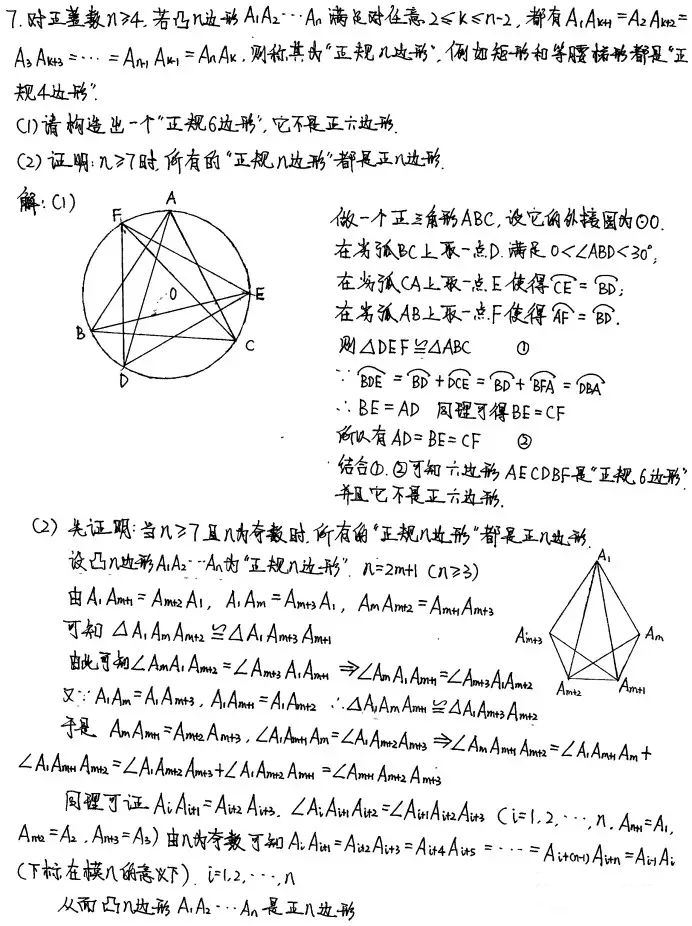 7. 对正整数n≥4, 若凸n边形A₁A₂⋯Aₙ满足对任意2≤k≤n-2, 都有A₁Aₖ₊₁=A₂Aₖ₊₂=
A₃Aₖ₊₃=⋯=Aₙ₋₁Aₖ₋₁=AₙAₖ, 则称其为“正规n边形”, 例如矩形和等腰梯形都是“正
规4边形”.
(1)请构造出一个“正规6边形”, 它不是正六边形.
(2)证明: n≥7时, 所有的“正规n边形”都是正n边形.
解: (1)
A
F
O
E
B
C
D
做一个正三角形ABC, 设它的外接圆为⊙O.
在劣弧BC上取一点D. 满足0<∠ABD<30°;
在劣弧CA上取一点E使得⌒CE=⌒BD;
在劣弧AB上取一点F使得⌒AF=⌒BD.
则△DEF≌△ABC ①
∵ ⌒BDE=⌒BD+⌒DCE=⌒BD+⌒BFA=⌒DBA
∴BE=AD 同理可得BE=CF
所以有AD=BE=CF ②
结合①.②可知六边形AECDBF是“正规6边形”
并且它不是正六边形.
(2) 先证明: 当n≥7且n为奇数时, 所有的“正规n边形”都是正n边形.
设凸n边形A₁A₂⋯Aₙ为“正规n边形”. n=2m+1 (n≥3)
由A₁Aₘ₊₁=Aₘ₊₂A₁, A₁Aₘ=Aₘ₊₃A₁, AₘAₘ₊₂=Aₘ₊₁Aₘ₊₃
可知 △A₁AₘAₘ₊₂≌△A₁Aₘ₊₃Aₘ₊₁
由此可知∠AₘA₁Aₘ₊₂=∠Aₘ₊₃A₁Aₘ₊₁ ⇒∠AₘA₁Aₘ₊₁=∠Aₘ₊₃A₁Aₘ₊₂
又∵A₁Aₘ=A₁Aₘ₊₃, A₁Aₘ₊₁=A₁Aₘ₊₂ ∴△A₁AₘAₘ₊₁≌△A₁Aₘ₊₃Aₘ₊₂
于是 AₘAₘ₊₁=Aₘ₊₂Aₘ₊₃, ∠A₁Aₘ₊₁Aₘ=∠A₁Aₘ₊₂Aₘ₊₃ ⇒∠AₘAₘ₊₁Aₘ₊₂=∠A₁Aₘ₊₁Aₘ+
∠A₁Aₘ₊₁Aₘ₊₂=∠A₁Aₘ₊₂Aₘ₊₃+∠A₁Aₘ₊₂Aₘ₊₁=∠Aₘ₊₁Aₘ₊₂Aₘ₊₃
A₁
Aₘ₊₃
Aₘ
Aₘ₊₂
Aₘ₊₁
同理可证AᵢAᵢ₊₁=Aᵢ₊₂Aᵢ₊₃, ∠AᵢAᵢ₊₁Aᵢ₊₂=∠Aᵢ₊₁Aᵢ₊₂Aᵢ₊₃ (i=1,2,⋯,n, Aₙ₊₁=A₁,
Aₙ₊₂=A₂, Aₙ₊₃=A₃) 由n为奇数可知AᵢAᵢ₊₁=Aᵢ₊₂Aᵢ₊₃=Aᵢ₊₄Aᵢ₊₅=⋯=Aᵢ₊₍ₙ₋₁₎Aᵢ₊ₙ=Aᵢ₋₁Aᵢ
(下标在模n的意义下). i=1,2,⋯,n
从而凸n边形A₁A₂⋯Aₙ是正n边形